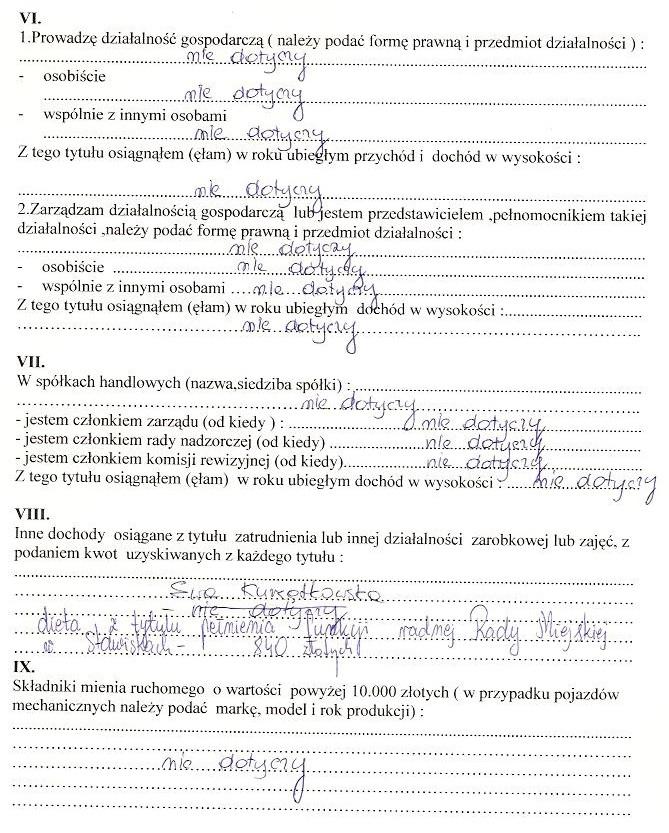 VI.
1.Prowadzę działalność gospodarczą ( należy podać formę prawną i przedmiot działalności ) :
nie dotyczy
- osobiście
nie dotyczy
- wspólnie z innymi osobami
nie dotyczy
Z tego tytułu osiągnąłem (ęłam) w roku ubiegłym przychód i dochód w wysokości :
nie dotyczy
2.Zarządzam działalnością gospodarczą lub jestem przedstawicielem ,pełnomocnikiem takiej
działalności ,należy podać formę prawną i przedmiot działalności :
nie dotyczy
- osobiście nie dotyczy
- wspólnie z innymi osobami nie dotyczy
Z tego tytułu osiągnąłem (ęłam) w roku ubiegłym dochód w wysokości :
nie dotyczy
VII.
W spółkach handlowych (nazwa,siedziba spółki) :
nie dotyczy
- jestem członkiem zarządu (od kiedy ) : nie dotyczy
- jestem członkiem rady nadzorczej (od kiedy) nie dotyczy
- jestem członkiem komisji rewizyjnej (od kiedy) nie dotyczy
Z tego tytułu osiągnąłem (ęłam) w roku ubiegłym dochód w wysokości : nie dotyczy
VIII.
Inne dochody osiągane z tytułu zatrudnienia lub innej działalności zarobkowej lub zajęć, z
podaniem kwot uzyskiwanych z każdego tytułu :
Ewa
nie dotyczy
dieta z tytułu pełnienia funkcji radnej Rady Miejskiej
w Stawiskach - 840 złotych
IX.
Składniki mienia ruchomego o wartości powyżej 10.000 złotych ( w przypadku pojazdów
mechanicznych należy podać markę, model i rok produkcji) :
nie dotyczy